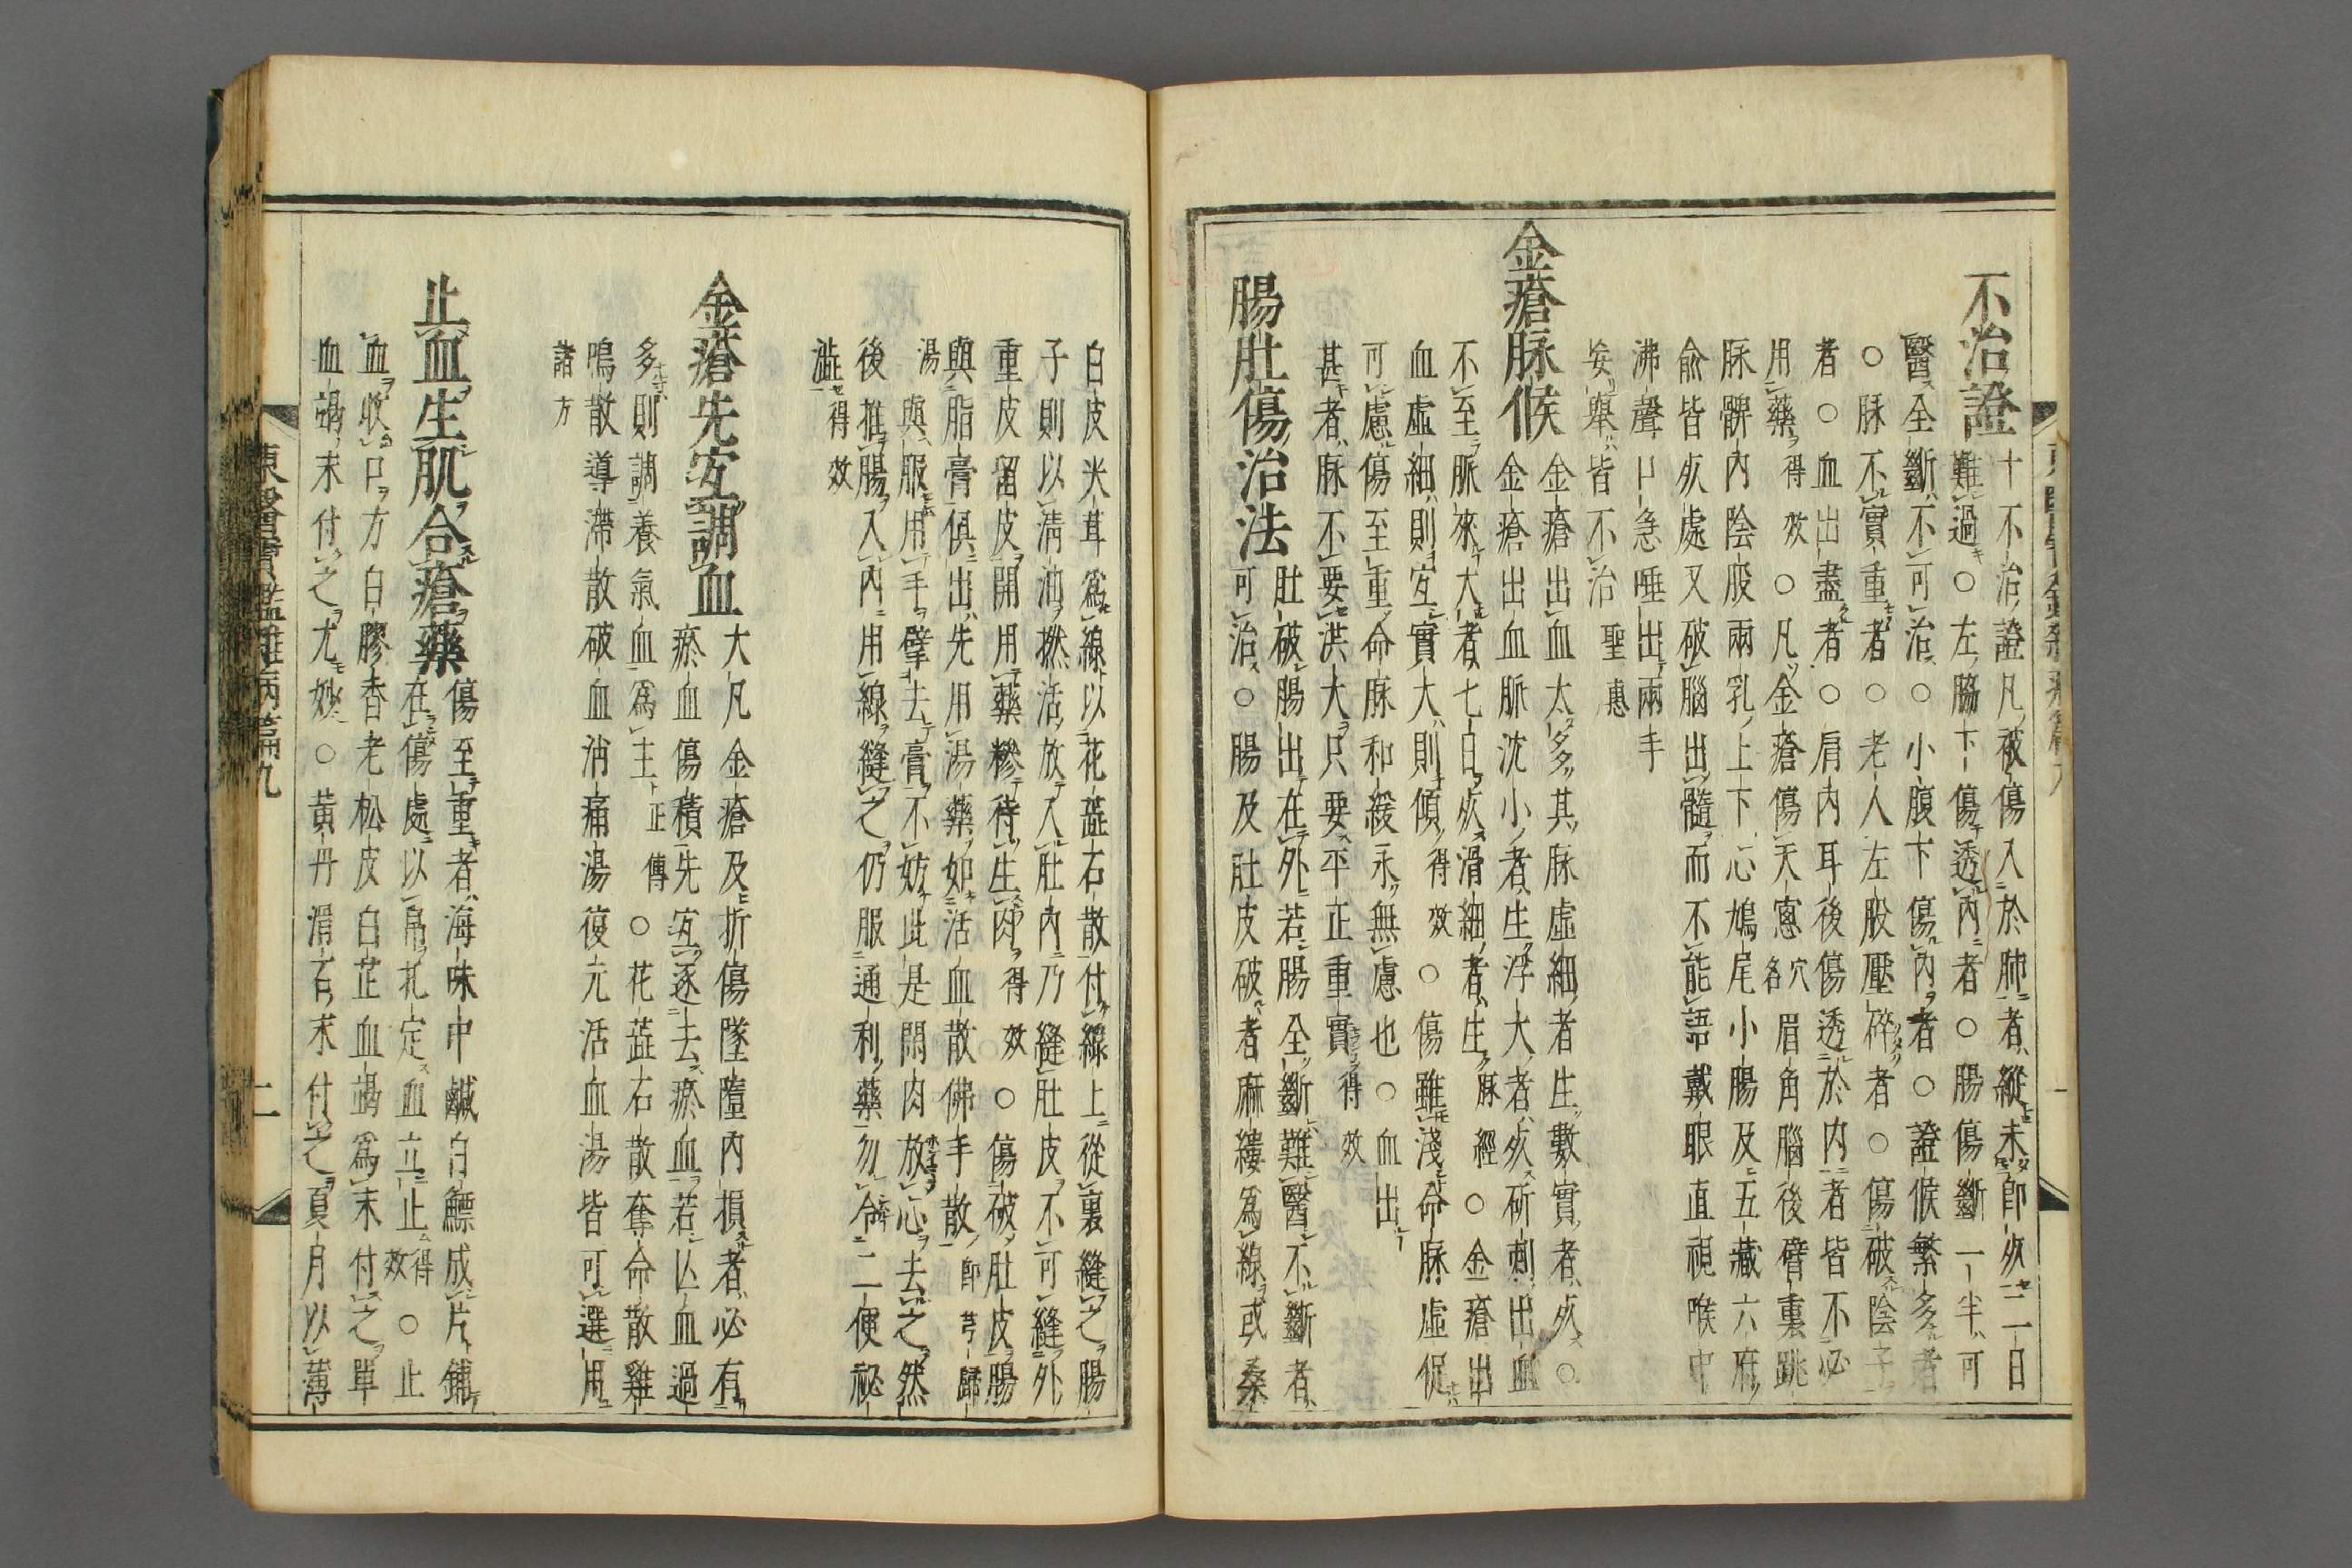 不治證
十不治證凡被傷入於肺者縱未即死二日
難過○左脇下傷透內者○腸傷斷一半可
醫全斷不可治○小腹下傷內者○證候繁多者
○脉不實重者○老人左股壓碎者○傷破陰子
者○血出盡者○肩內耳後傷透於內者皆不必
用藥得效○凡金瘡傷天窓穴名眉角腦後臂裏跳
脉髀內陰股兩乳上下心鳩尾小腸及五藏六府
俞皆死處又破腦出髓而不能語戴眼直視喉中
沸聲口急唾出兩手
妄擧皆不治聖惠
金瘡脉候
金瘡出血太多其脉虛細者生數實者死○
金瘡出血脈沈小者生浮大者死斫刺出血
不至脈來大者七日死滑細者生脉經○金瘡出
血虛細則宜實大則傾得效○傷雖淺命脉虛促
可慮傷至重命脉和緩永無慮也○血出
甚者脉不要洪大只要平正重實得效
腸肚傷治法
肚破腸出在外若腸全斷難醫不斷者
可治○腸及肚皮破者麻縷爲線或桑
白皮尖茸爲線以花蘂石散付線上從裏縫之腸
子則以淸油撚活放入肚內乃縫肚皮不可縫外
重皮留皮開用藥糝待生肉得效○傷破肚皮腸
與脂膏俱出先用湯藥如活血散佛手散即芎歸
湯與服用手擘去膏不妨此是閑肉放心去之然
後推腸入內用線縫之仍服通利藥勿令二便祕
澁得效
金瘡先宜調血
大凡金瘡及折傷墜墮內損者必有
瘀血傷積先宜逐去瘀血若亾血過
多則調養氣血爲主正傳○花蘂石散奪命散雞
鳴散導滯散破血消痛湯復元活血湯皆可選用
諸方
止血生肌合瘡藥
傷至重者海味中鹹白鰾成片鋪
在傷處以帛扎定血立止得效○止
血收口方白膠香老松皮白芷血竭爲末付之單
血竭末付之尤妙○黃丹滑石末付之夏月以薄
東醫寶鑑雜病篇九
二